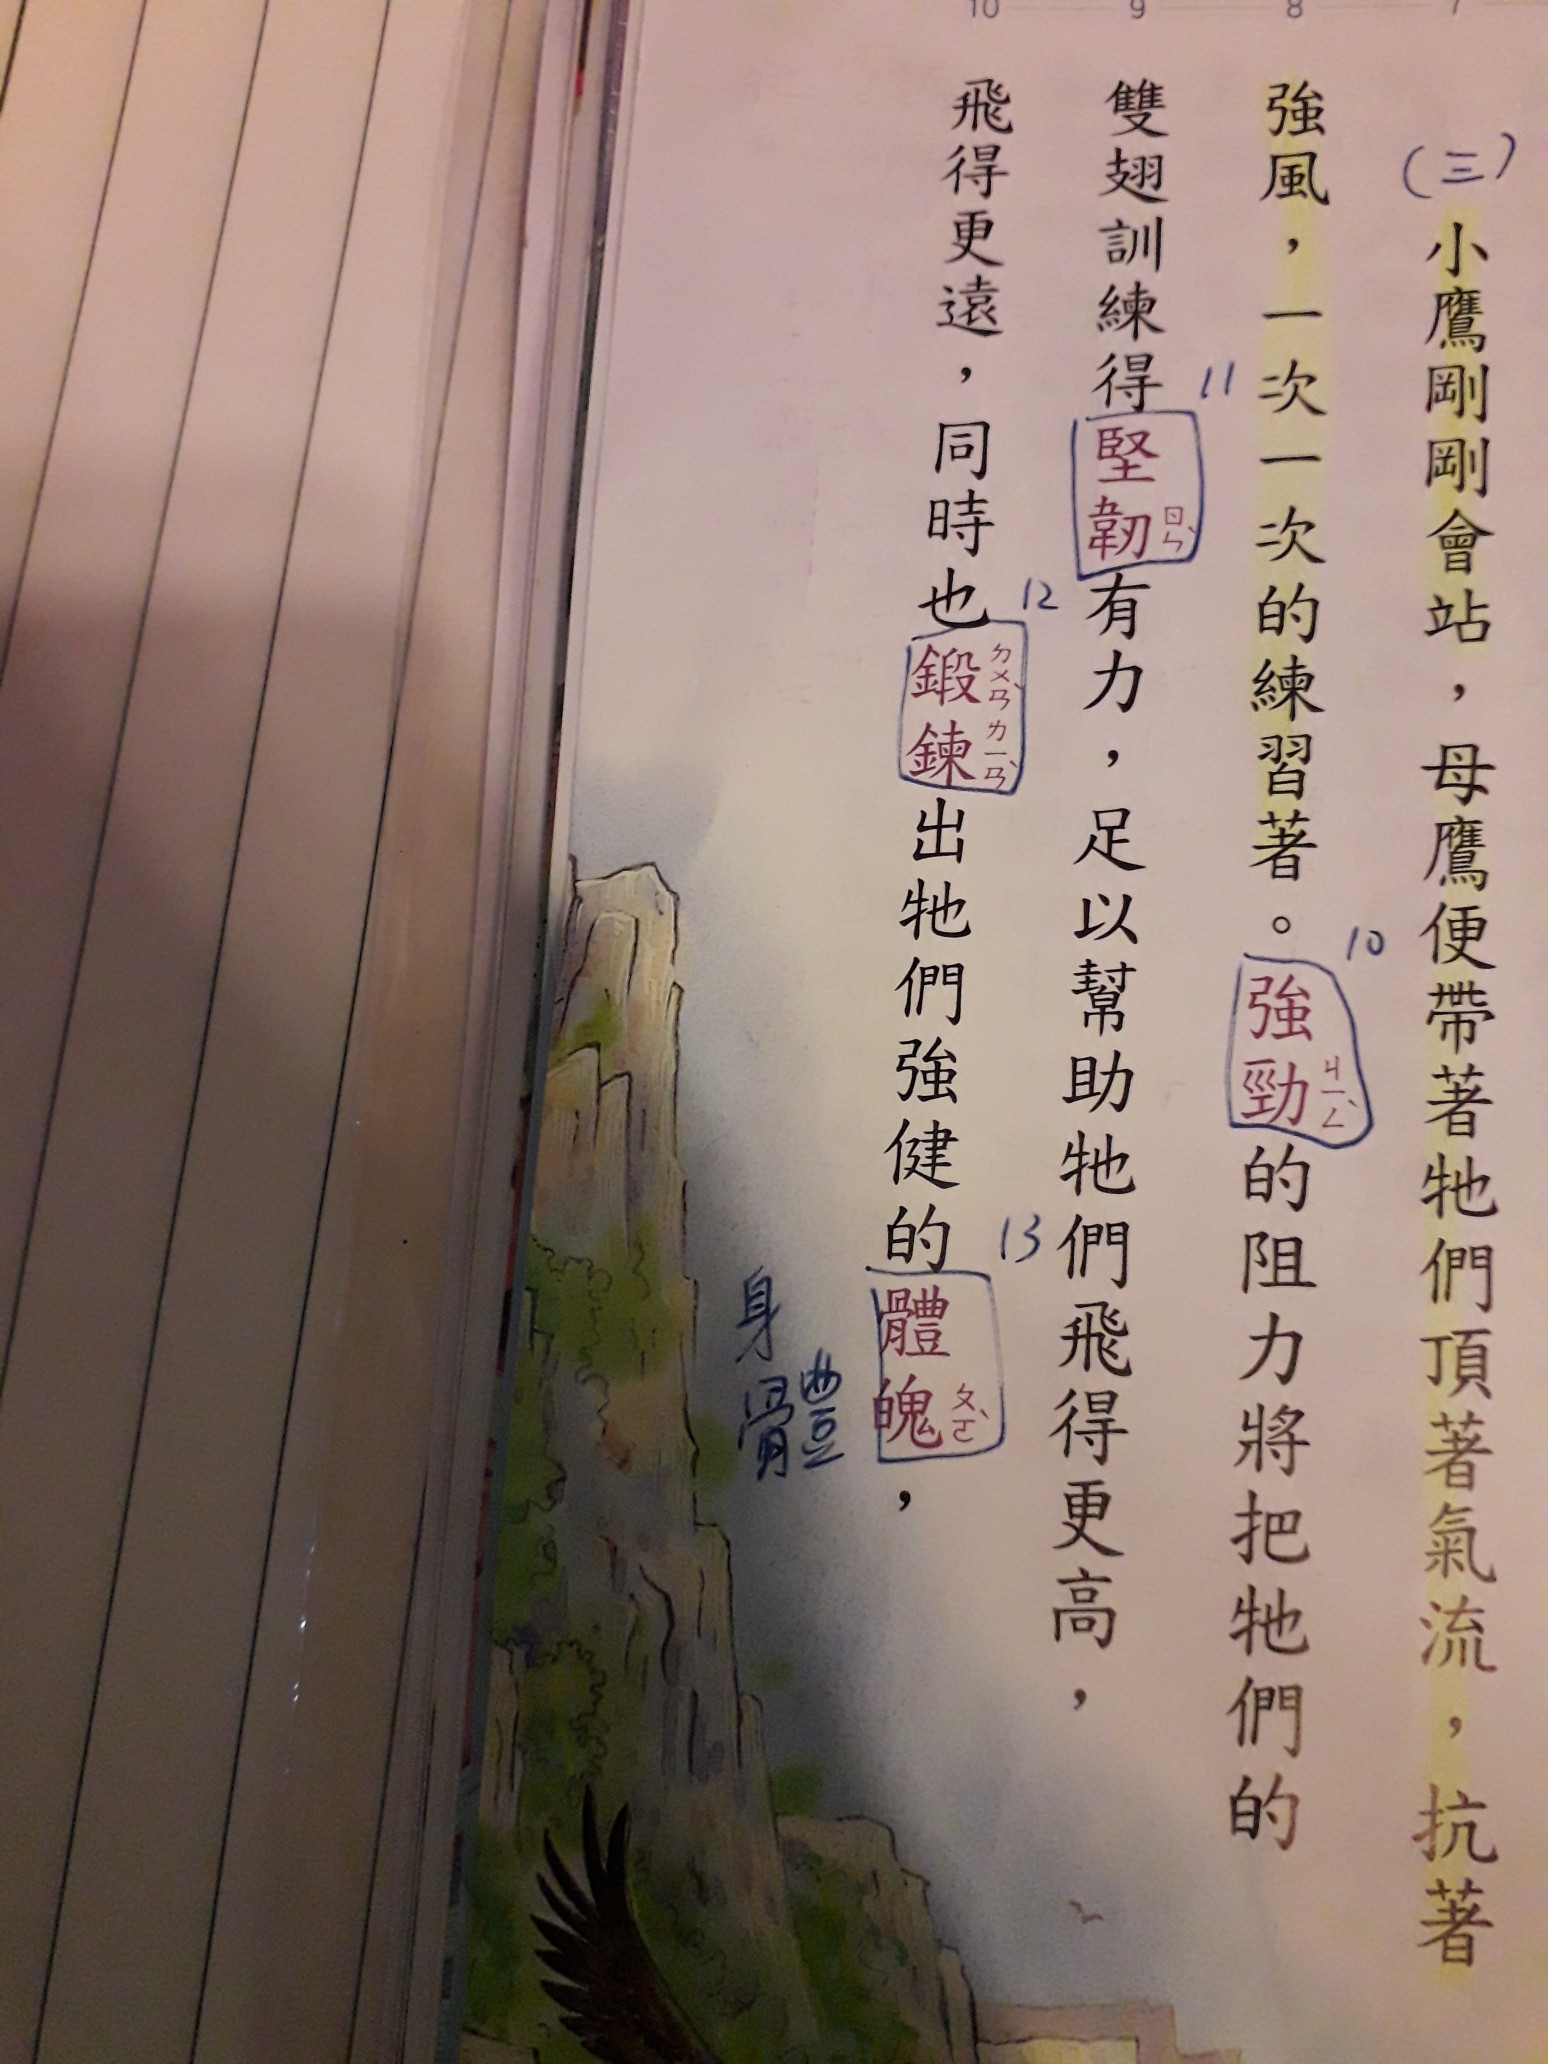 7
8
9
10
(三)
小鷹剛剛會站，母鷹便帶著牠們頂著氣流，抗著
強風，一次一次的練習著。強勁的阻力將把牠們的
10
ㄐㄧㄥˋ
雙翅訓練得堅韌有力，足以幫助牠們飛得更高，
11
ㄖㄣˋ
飛得更遠，同時也鍛鍊出牠們強健的體魄，
12
ㄉㄨㄢˋ
ㄌㄧㄢˋ
13
ㄆㄛˋ
身體